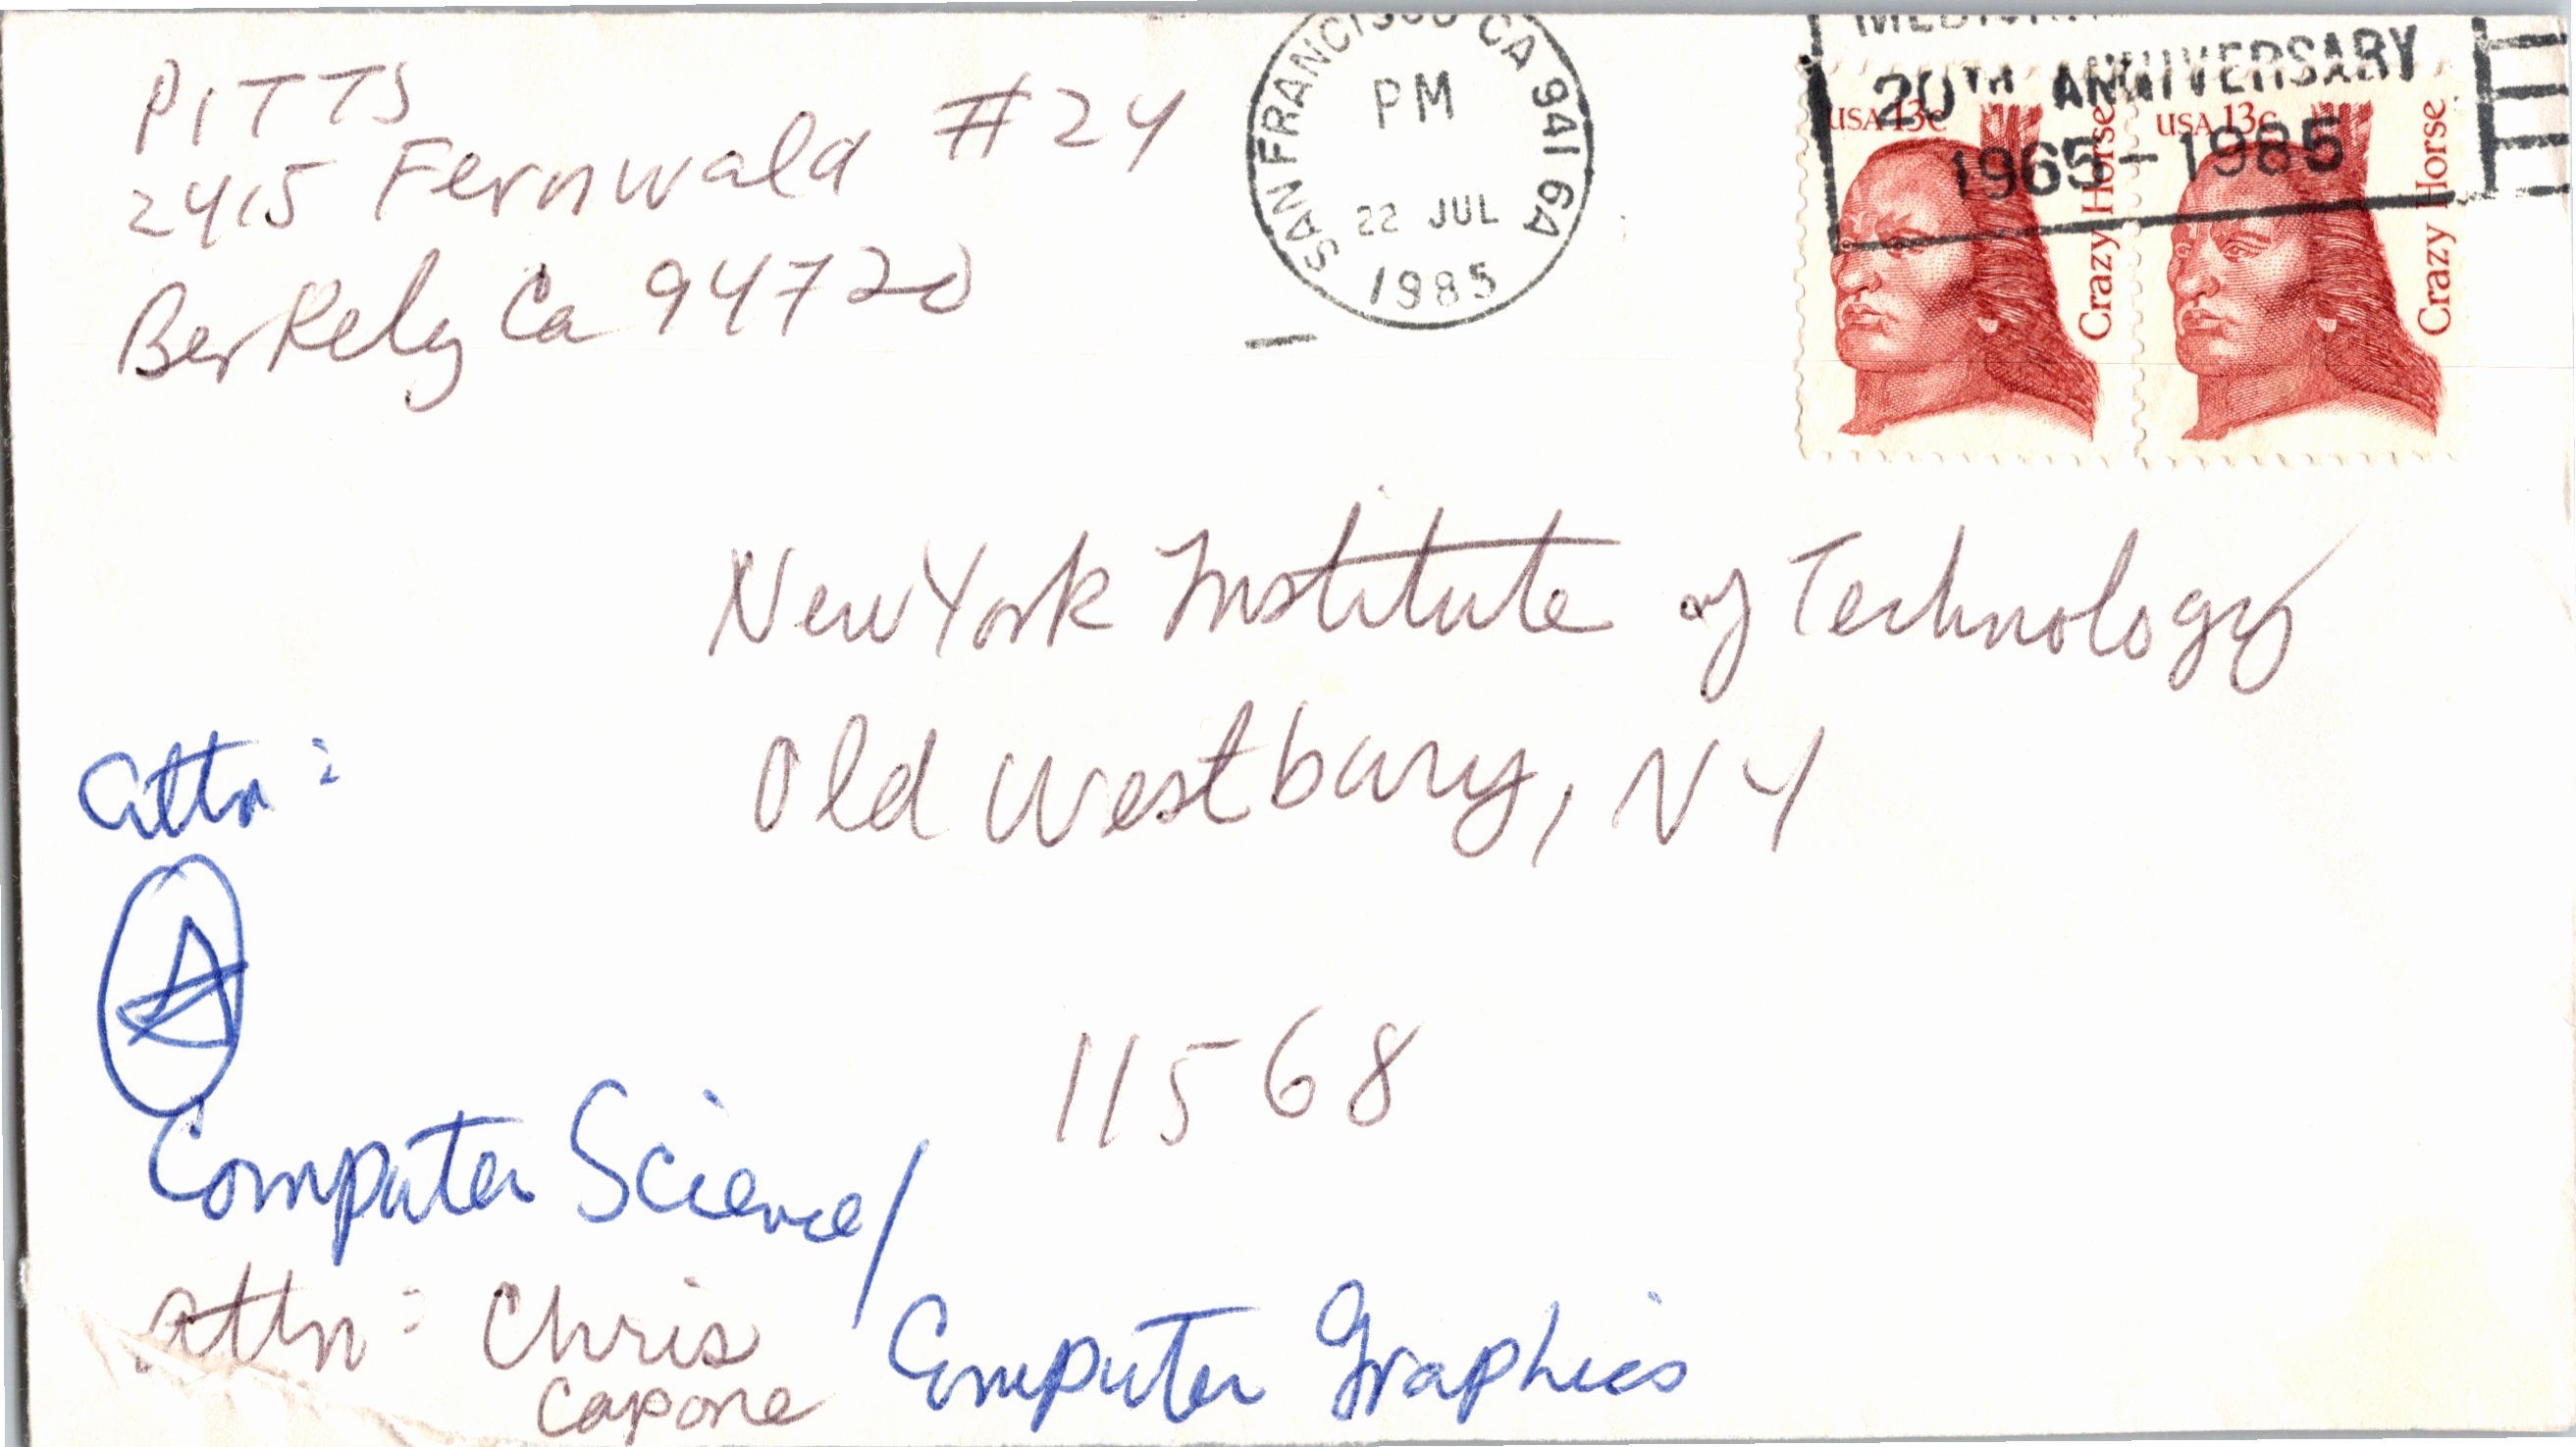 PITTS
2415 Fernwald #24
Berkely Ca 94720
SAN FRANCISCO CA 941 6A
PM
22 JUL
1985
20TH ANNIVERSARY
1965-1985
USA 13c
Crazy Horse
USA 13c
Crazy Horse
New York Institute of Technology
Old Westbury, NY
11568
attn:
A
Computer Science/
Computer Graphics
Attn: Chris
Capone